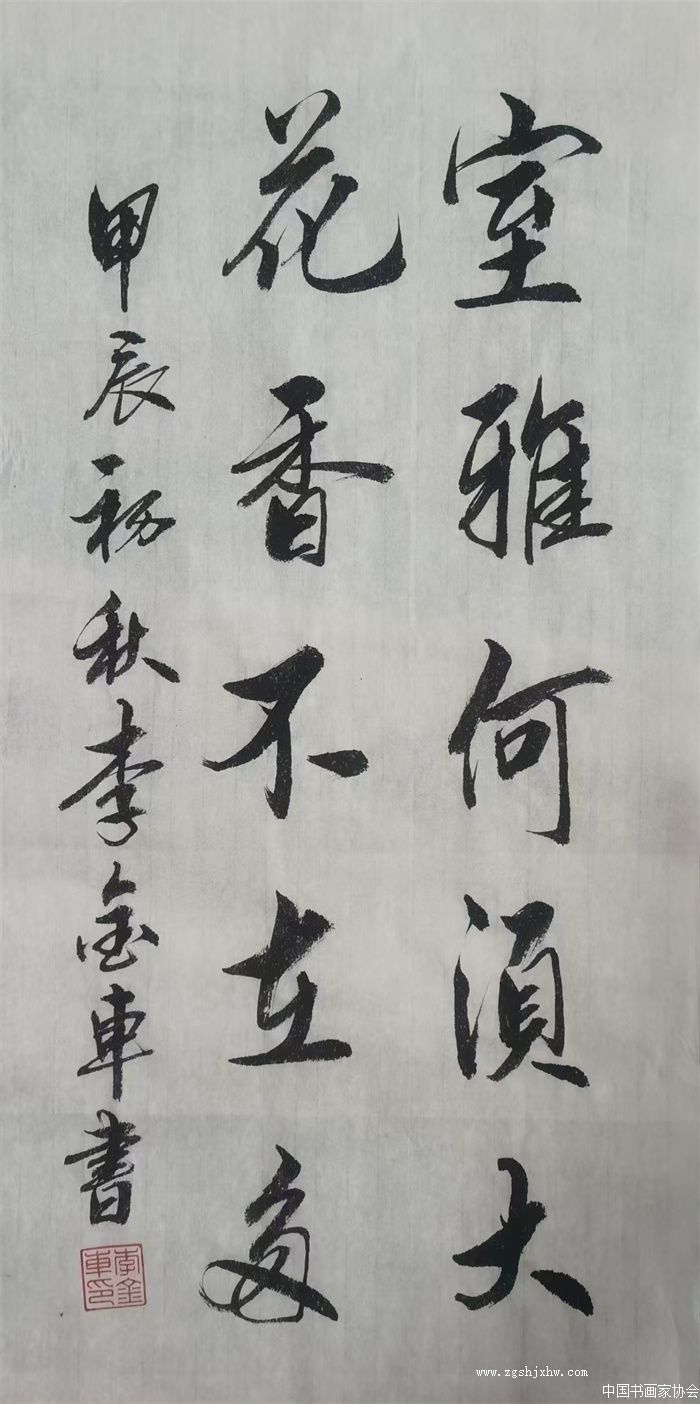 室雅何須大
花香不在多
甲辰初秋李金車書
李金車印
www.zgshjxhw.com
中国书画家协会